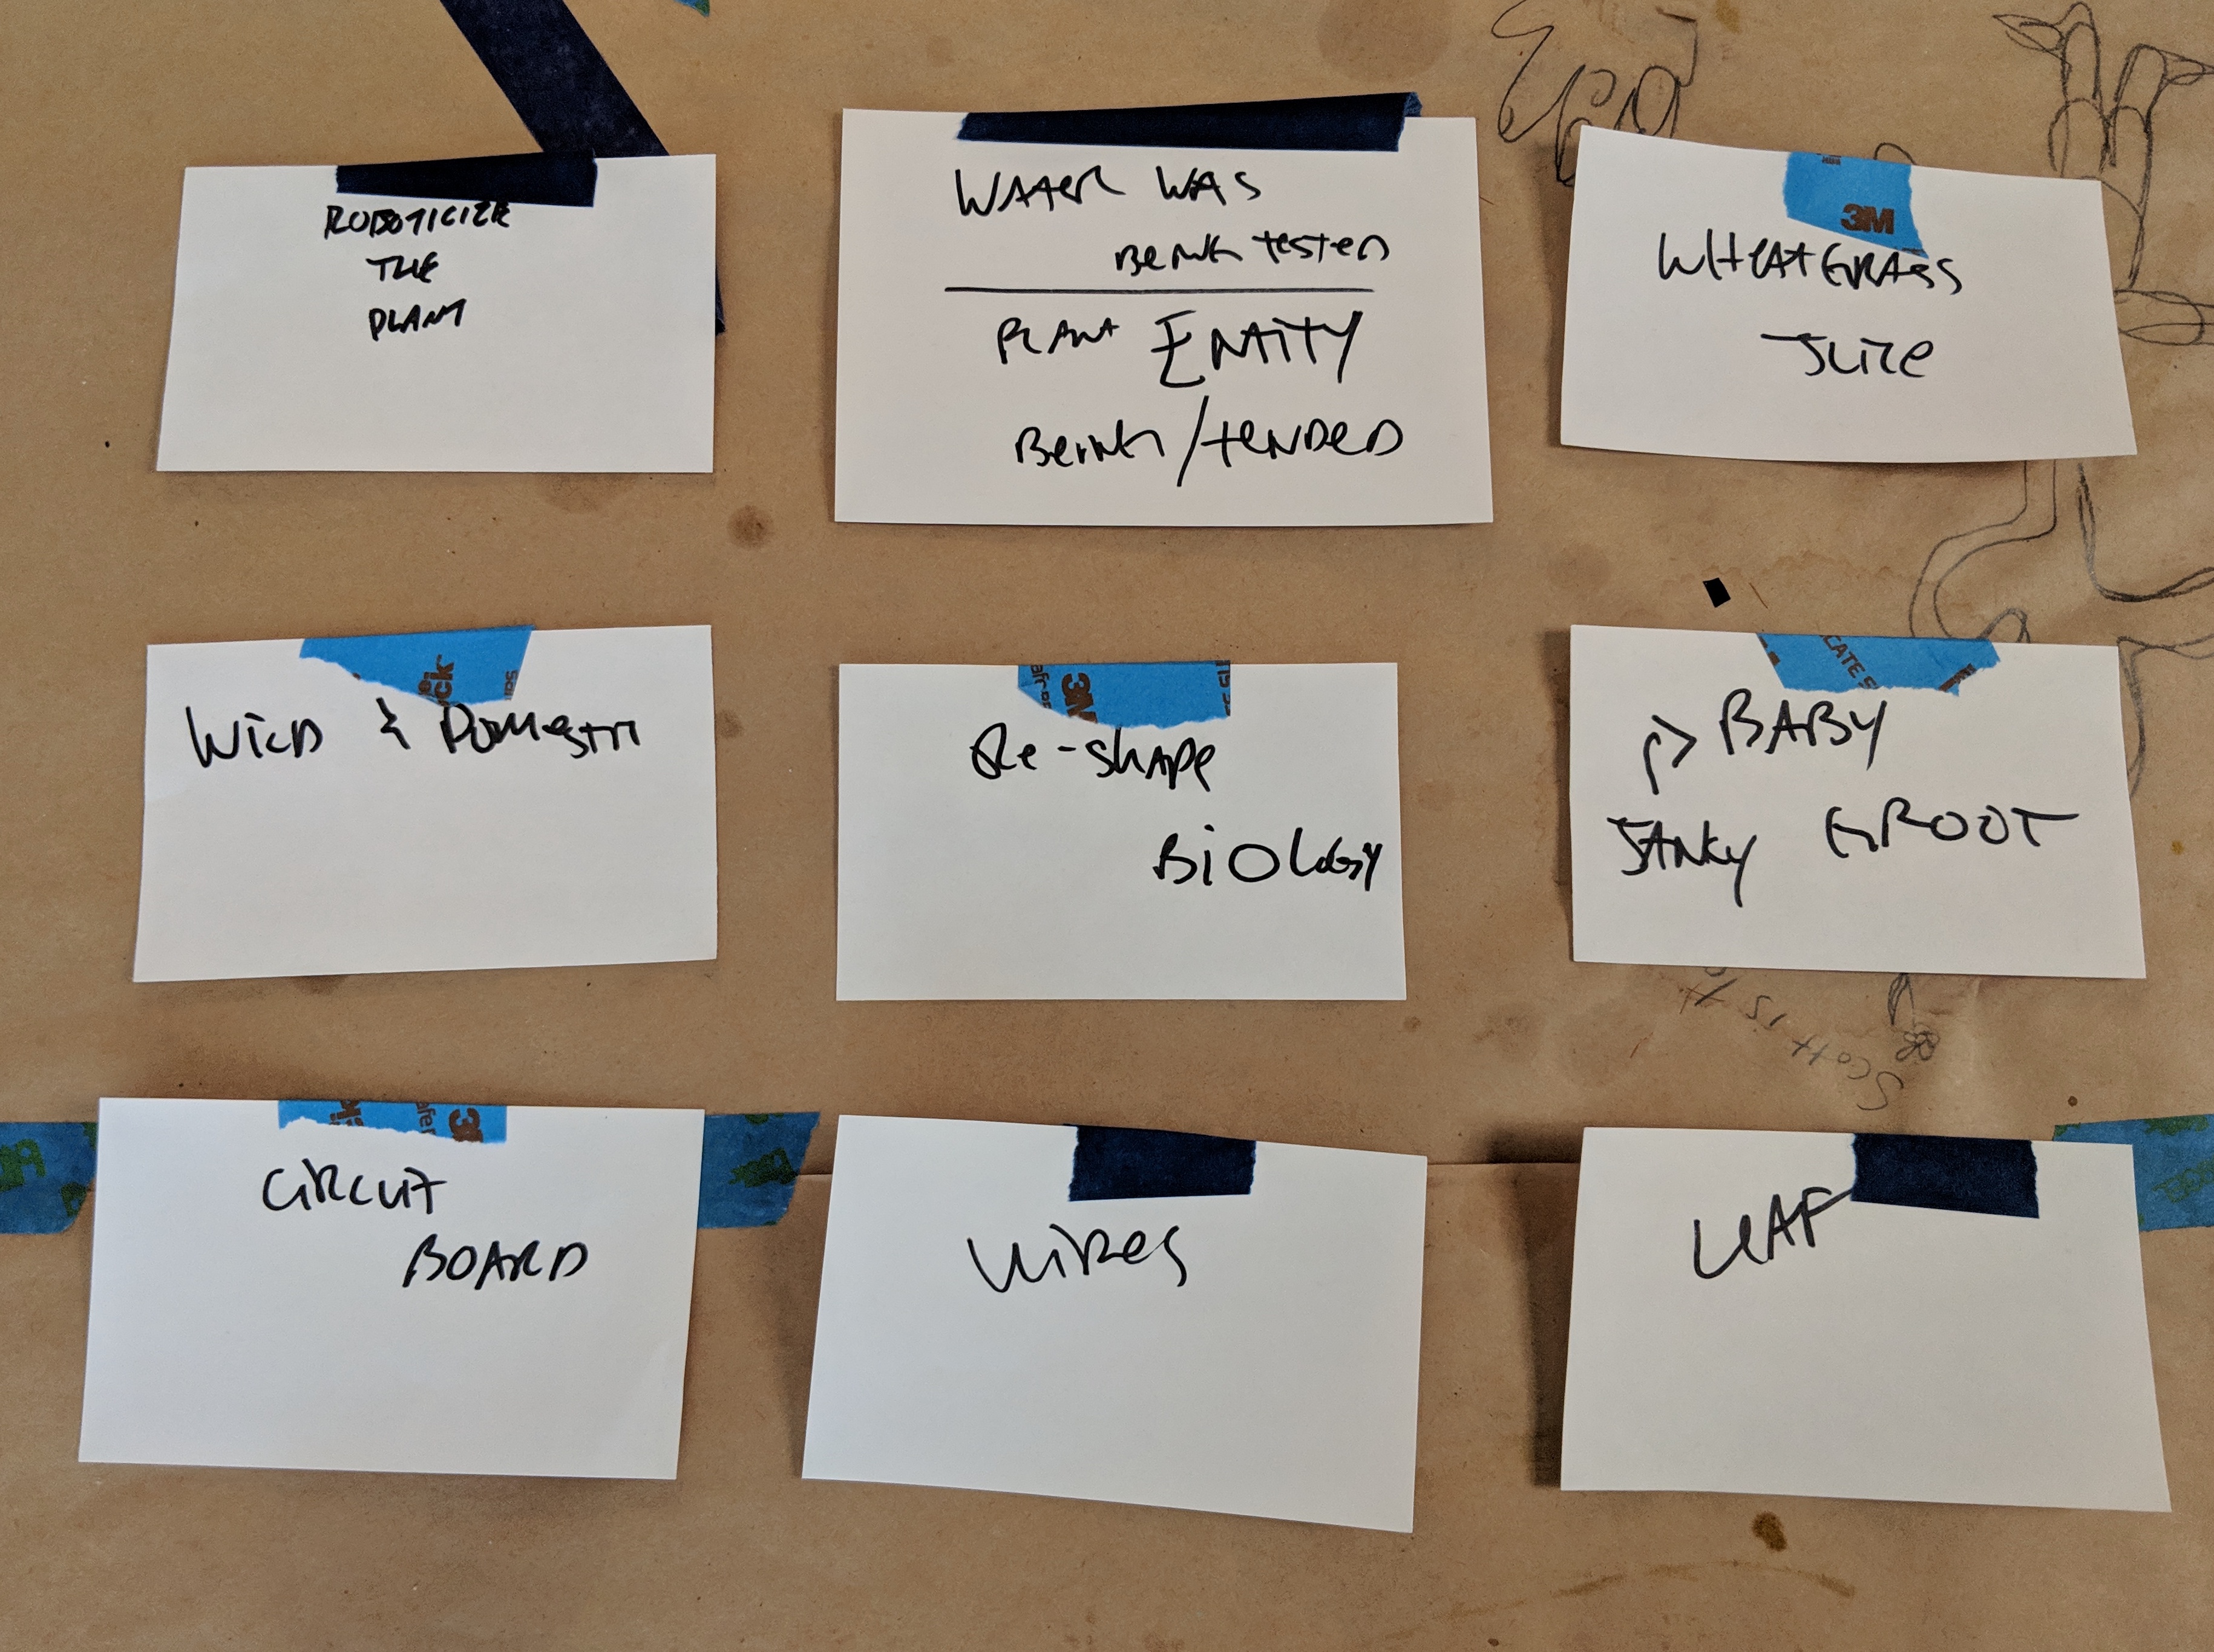 ROBOTICIZE
THE
PLANT
WATER WAS
BEING TESTED
PLANT ENTITY
BEING / TENDED
WHEATGRASS
JUICE
3M
WILD & DOMESTIC
Re-shape
BiOLOGY
BABY
JANKY GROOT
CATE S
CIRCUIT
BOARD
WIRES
LEAF
Scott is